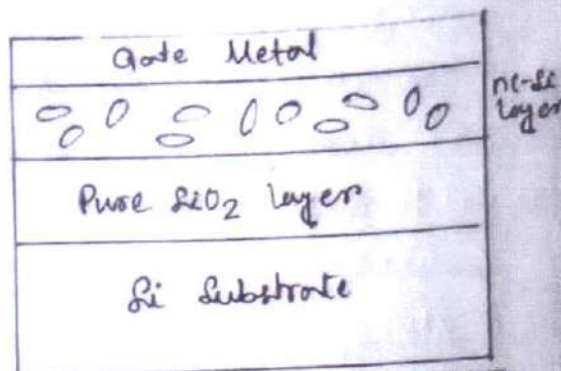 Gate Metal
nc-Si
layer
Pure SiO2 layer
Si Substrate